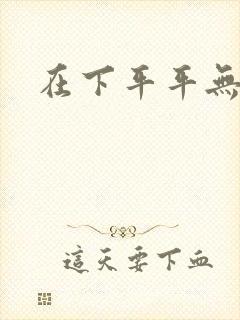 在下平平無
這天要下血